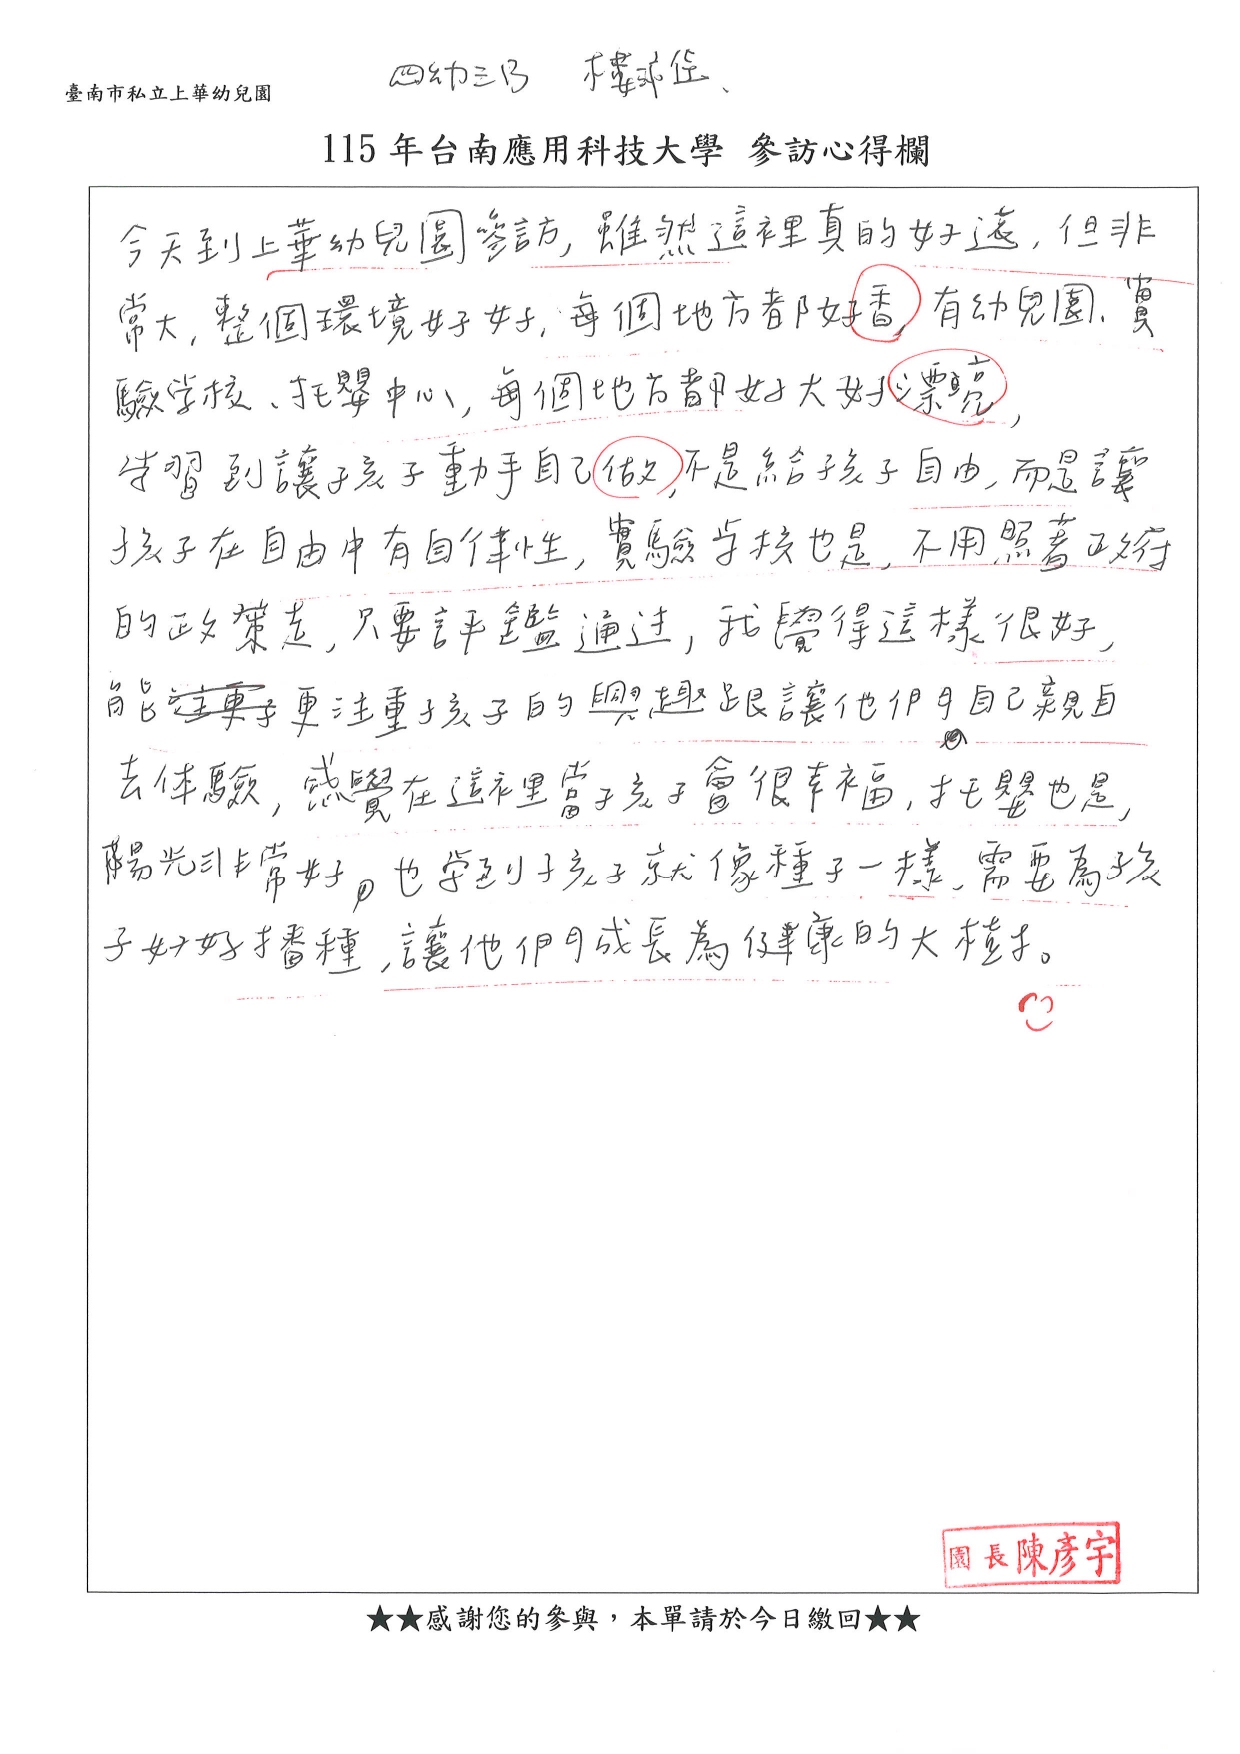 四幼三B 樓
臺南市私立上華幼兒園
115 年台南應用科技大學 參訪心得欄
今天到上華幼兒園參訪，雖然這裡真的好遠，但非
常大，整個環境好好，每個地方都好香，有幼兒園、實
驗學校、托嬰中心，每個地方都好大好漂亮，
學習到讓孩子動手自己做，不是給孩子自由，而是讓
孩子在自由中有自律性，實驗學校也是，不用照著政府
的政策走，只要評鑑通過，我覺得這樣很好，
能更注重孩子的興趣跟讓他們自己親自
去体驗，感覺在這裡當孩子會很幸福，托嬰也是，
陽光非常好，也學到孩子就像種子一樣，需要為孩
子好好播種，讓他們成長為健康的大樹。
園長陳彥宇
★★感謝您的參與，本單請於今日繳回★★